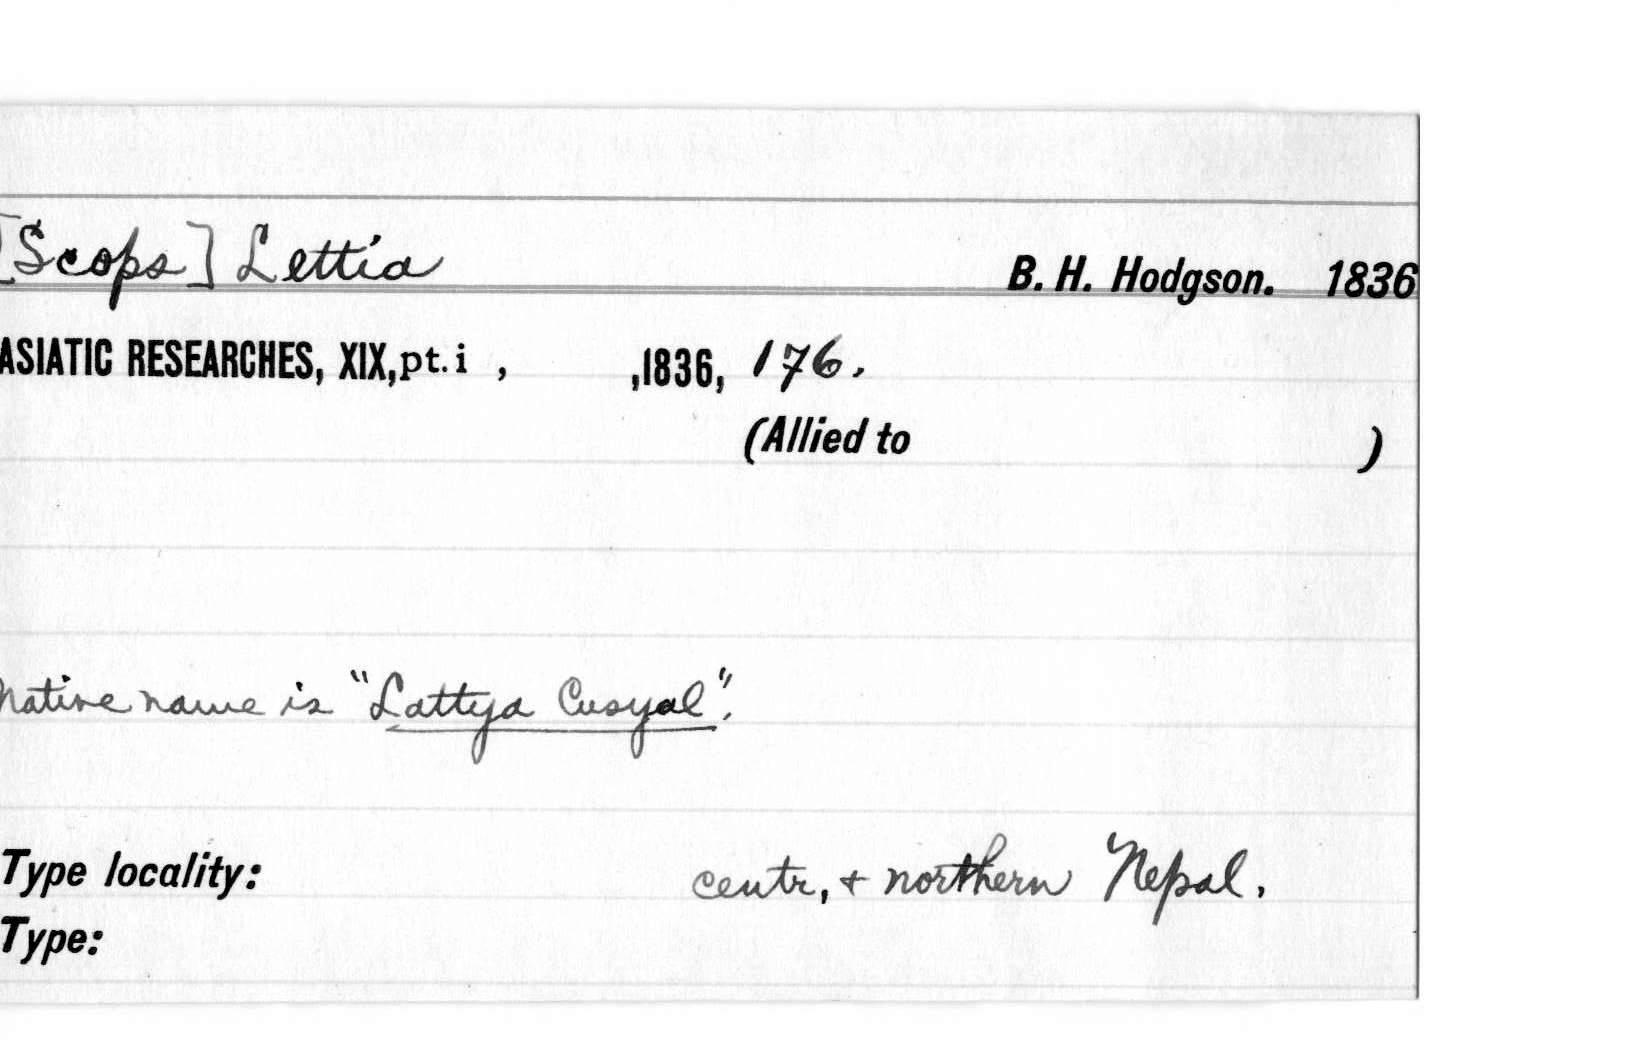 [Scops] Lettia B. H. Hodgson. 1836
ASIATIC RESEARCHES, XIX, pt.i , ,1836, 176.
(Allied to )
Native name is "Lattya Cusyal".
Type locality: centr, & northern Nepal.
Type: